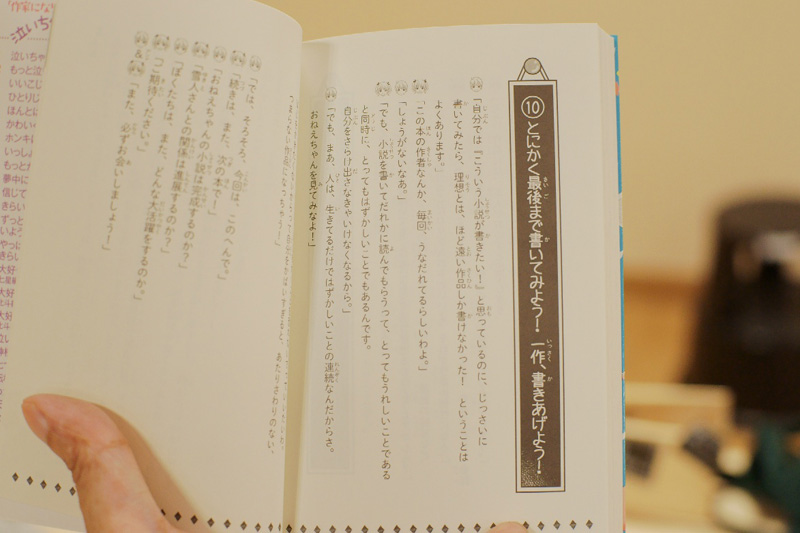 ⑩とにかく最後まで書いてみよう！ 一作、書きあげよう！
「自分では『こういう小説が書きたい！』と思っているのに、じっさいに
書いてみたら、理想とは、ほど遠い作品しか書けなかった！ ということは
よくあります。」
「この本の作者なんか、毎回、うなだれてるらしいわよ。」
「しょうがないなあ。」
「でも、小説を書いてだれかに読んでもらうって、とってもうれしいことである
と同時に、とってもはずかしいことでもあるんです。
自分をさらけ出さなきゃいけなくなるから。」
「でも、まあ、人は、生きてるだけではずかしいことの連続なんだからさ。
おねえちゃんを見てみなよ！」
あたりさわりのない、
つまらない作品になっちゃう！」
「では、そろそろ、今回は、このへんで。」
「続きは、また、次の本で！」
「おねえちゃんの小説は完成するのか？」
「雪人さんとの関係は進展するのか？」
「ぼくたちは、また、どんな大活躍をするのか。」
「ご期待ください。」
&「また、必ずお会いしましょう！」
「作家にな
泣いち
泣いちゃ
もっと泣
いいこじ
ひとりじ
ほんとに
かわい
ホンキ
いっし
もっと
夢中に
信じて
きらい
ずっと
いいよ
やっぱ
きらい
大好